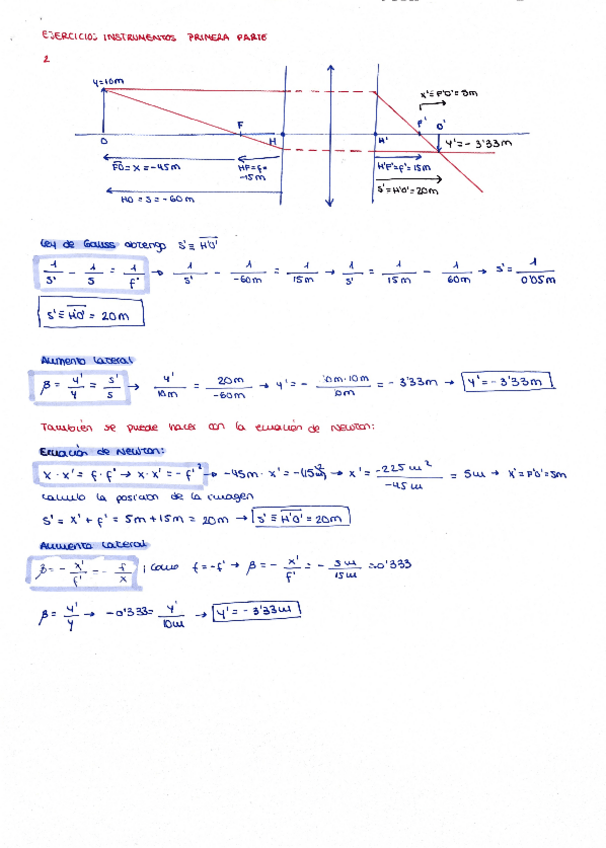 EJERCICIOS INSTRUMENTOS PRIMERA PARTE
2
y=10m
x'≡F'O'=5m
F
F'
O'
O
H
H'
y'=-3'33m
FO=x=-45m
HF=f=
-15m
H'F'=f'=15m
S'=H'O'=20m
HO=S=-60m
Ley de Gauss obtengo S'≡H'O'
1/S' - 1/S = 1/f' → 1/S' - 1/-60m = 1/15m → 1/S' = 1/15m - 1/60m → S' = 1/0'05m
S'≡H'O' = 20m
Aumento Lateral
β = y'/y = S'/S → y'/10m = 20m/-60m → y' = - = -3'33m → y'=-3'33m
También se puede hacer con la ecuación de Newton:
Ecuación de Newton:
x·x' = f·f' → x·x' = -f'² → -45m·x' = -(15m)² → x' = -225m²/-45m = 5m → x'=F'O'=5m
calculo la posicion de la imagen
S' = x' + f' = 5m + 15m = 20m → S'≡H'O'=20m
Aumento Lateral
β = - x'/f' = - f/x ; como f=-f' → β = - x'/f' = - 5m/15m = 0'333
β = y'/y → -0'333 = y'/10m → y'=-3'33m